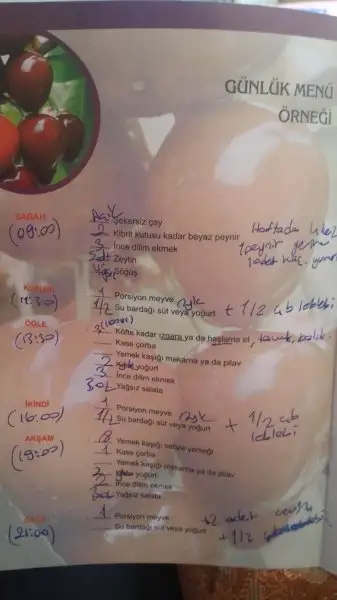 GÜNLÜK MENÜ
ÖRNEĞİ
SABAH
(09:00)
Açık Şekersiz çay
2 Kibrit kutusu kadar beyaz peynir
3 İnce dilim ekmek
Zeytin
Söğüş
Haftada
peynir yerine
1 adet haş.
(11:30)
1 Porsiyon meyve
1/2 Su bardağı süt veya yoğurt + 1/2 çb leblebi
ÖĞLE
(13:30)
Köfte kadar ızgara ya da haşlama et, tavuk, balık.
Kase çorba
Yemek kaşığı makarna ya da pilav
2 yoğurt
3 İnce dilim ekmek
Bol Yağsız salata
İKİNDİ
(16:00)
1 Porsiyon meyve
1/2 Su bardağı süt veya yoğurt + 1/2 çb
leblebi
AKŞAM
(19:00)
8 Yemek kaşığı sebze yemeği
1 Kase çorba
Yemek kaşığı makarna ya da pilav
2 yoğurt
2 İnce dilim ekmek
Bol Yağsız salata
GECE
(21:00)
1 Porsiyon meyve +2 adet ceviz
Su bardağı süt veya yoğurt +1/2